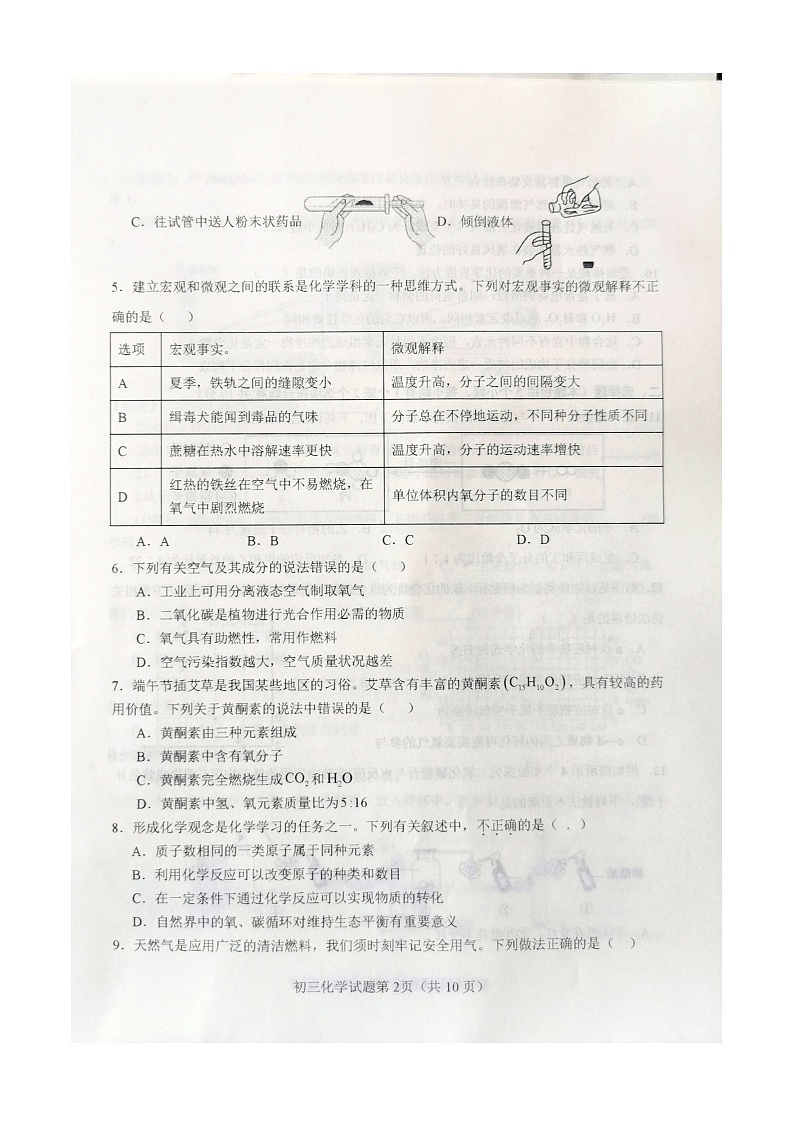 C．往试管中送人粉末状药品 D．倾倒液体
5．建立宏观和微观之间的联系是化学学科的一种思维方式。下列对宏观事实的微观解释不正
确的是（ ）
选项 宏观事实。 微观解释
A 夏季，铁轨之间的缝隙变小 温度升高，分子之间的间隔变大
B 缉毒犬能闻到毒品的气味 分子总在不停地运动，不同种分子性质不同
C 蔗糖在热水中溶解速率更快 温度升高，分子的运动速率增快
D 红热的铁丝在空气中不易燃烧，在
氧气中剧烈燃烧 单位体积内氧分子的数目不同
A．A B．B C．C D．D
6．下列有关空气及其成分的说法错误的是（ ）
A．工业上可用分离液态空气制取氧气
B．二氧化碳是植物进行光合作用必需的物质
C．氧气具有助燃性，常用作燃料
D．空气污染指数越大，空气质量状况越差
7．端午节插艾草是我国某些地区的习俗。艾草含有丰富的黄酮素(C₁₅H₁₀O₂)，具有较高的药
用价值。下列关于黄酮素的说法中错误的是（ ）
A．黄酮素由三种元素组成
B．黄酮素中含有氧分子
C．黄酮素完全燃烧生成CO₂和H₂O
D．黄酮素中氢、氧元素质量比为5:16
8．形成化学观念是化学学习的任务之一。下列有关叙述中，不正确的是（ ．）
A．质子数相同的一类原子属于同种元素
B．利用化学反应可以改变原子的种类和数目
C．在一定条件下通过化学反应可以实现物质的转化
D．自然界中的氧、碳循环对维持生态平衡有重要意义
9．天然气是应用广泛的清洁燃料，我们须时刻牢记安全用气。下列做法正确的是（ ）
初三化学试题第 2页（共 10 页）